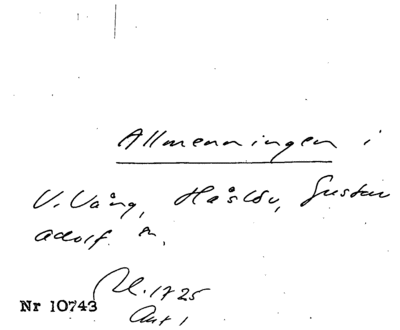 Allmenningen i
V. Vång, Håslöv, Gustav
Adolf m.
Nr 10743
Nr. 1725
Akt 1